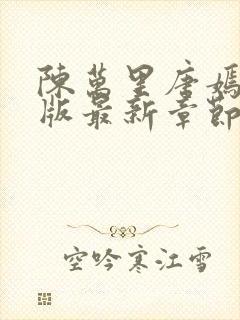 陳萬里唐嫣
版最新章節
空吟寒江雪